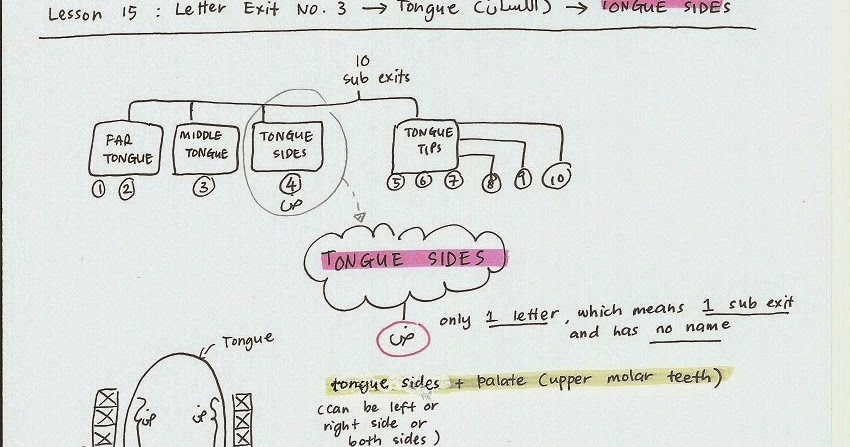 Lesson 15 : Letter Exit No. 3 → Tongue (اللسان) → TONGUE SIDES
10
sub exits
FAR
TONGUE
MIDDLE
TONGUE
TONGUE
SIDES
TONGUE
TIPS
① ② ③ ④ ⑤ ⑥ ⑦ ⑧ ⑨ ⑩
ض
TONGUE SIDES
only 1 letter, which means 1 sub exit
and has no name
ض
Tongue
tongue sides + palate (upper molar teeth)
(can be left or
right side or
both sides)
ض ض